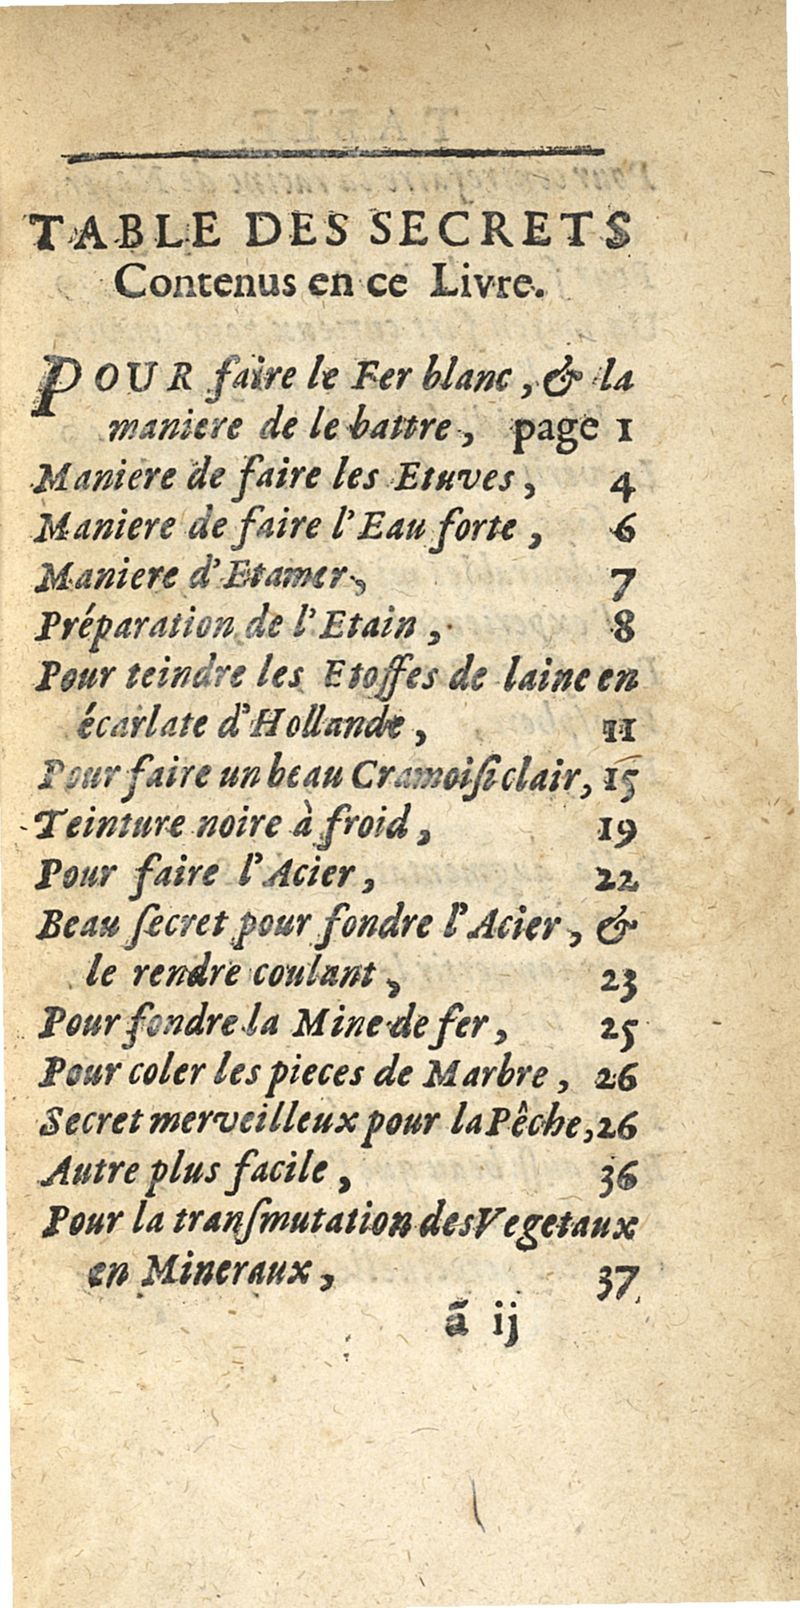 TABLE DES SECRETS
Contenus en ce Livre.
POUR faire le Fer blanc, & la
maniere de le battre, page 1
Maniere de faire les Etuves, 4
Maniere de faire l'Eau forte, 6
Maniere d'Etamer, 7
Préparation de l'Etain, 8
Pour teindre les Etoffes de laine en
écarlate d'Hollande, 11
Pour faire un beau Cramoiſi clair, 15
Teinture noire à froid, 19
Pour faire l'Acier, 22
Beau ſecret pour fondre l'Acier, &
le rendre coulant, 23
Pour fondre la Mine de fer, 25
Pour coler les pieces de Marbre, 26
Secret merveilleux pour la Pêche, 26
Autre plus facile, 36
Pour la tranſmutation des Vegetaux
en Mineraux, 37
ã ij